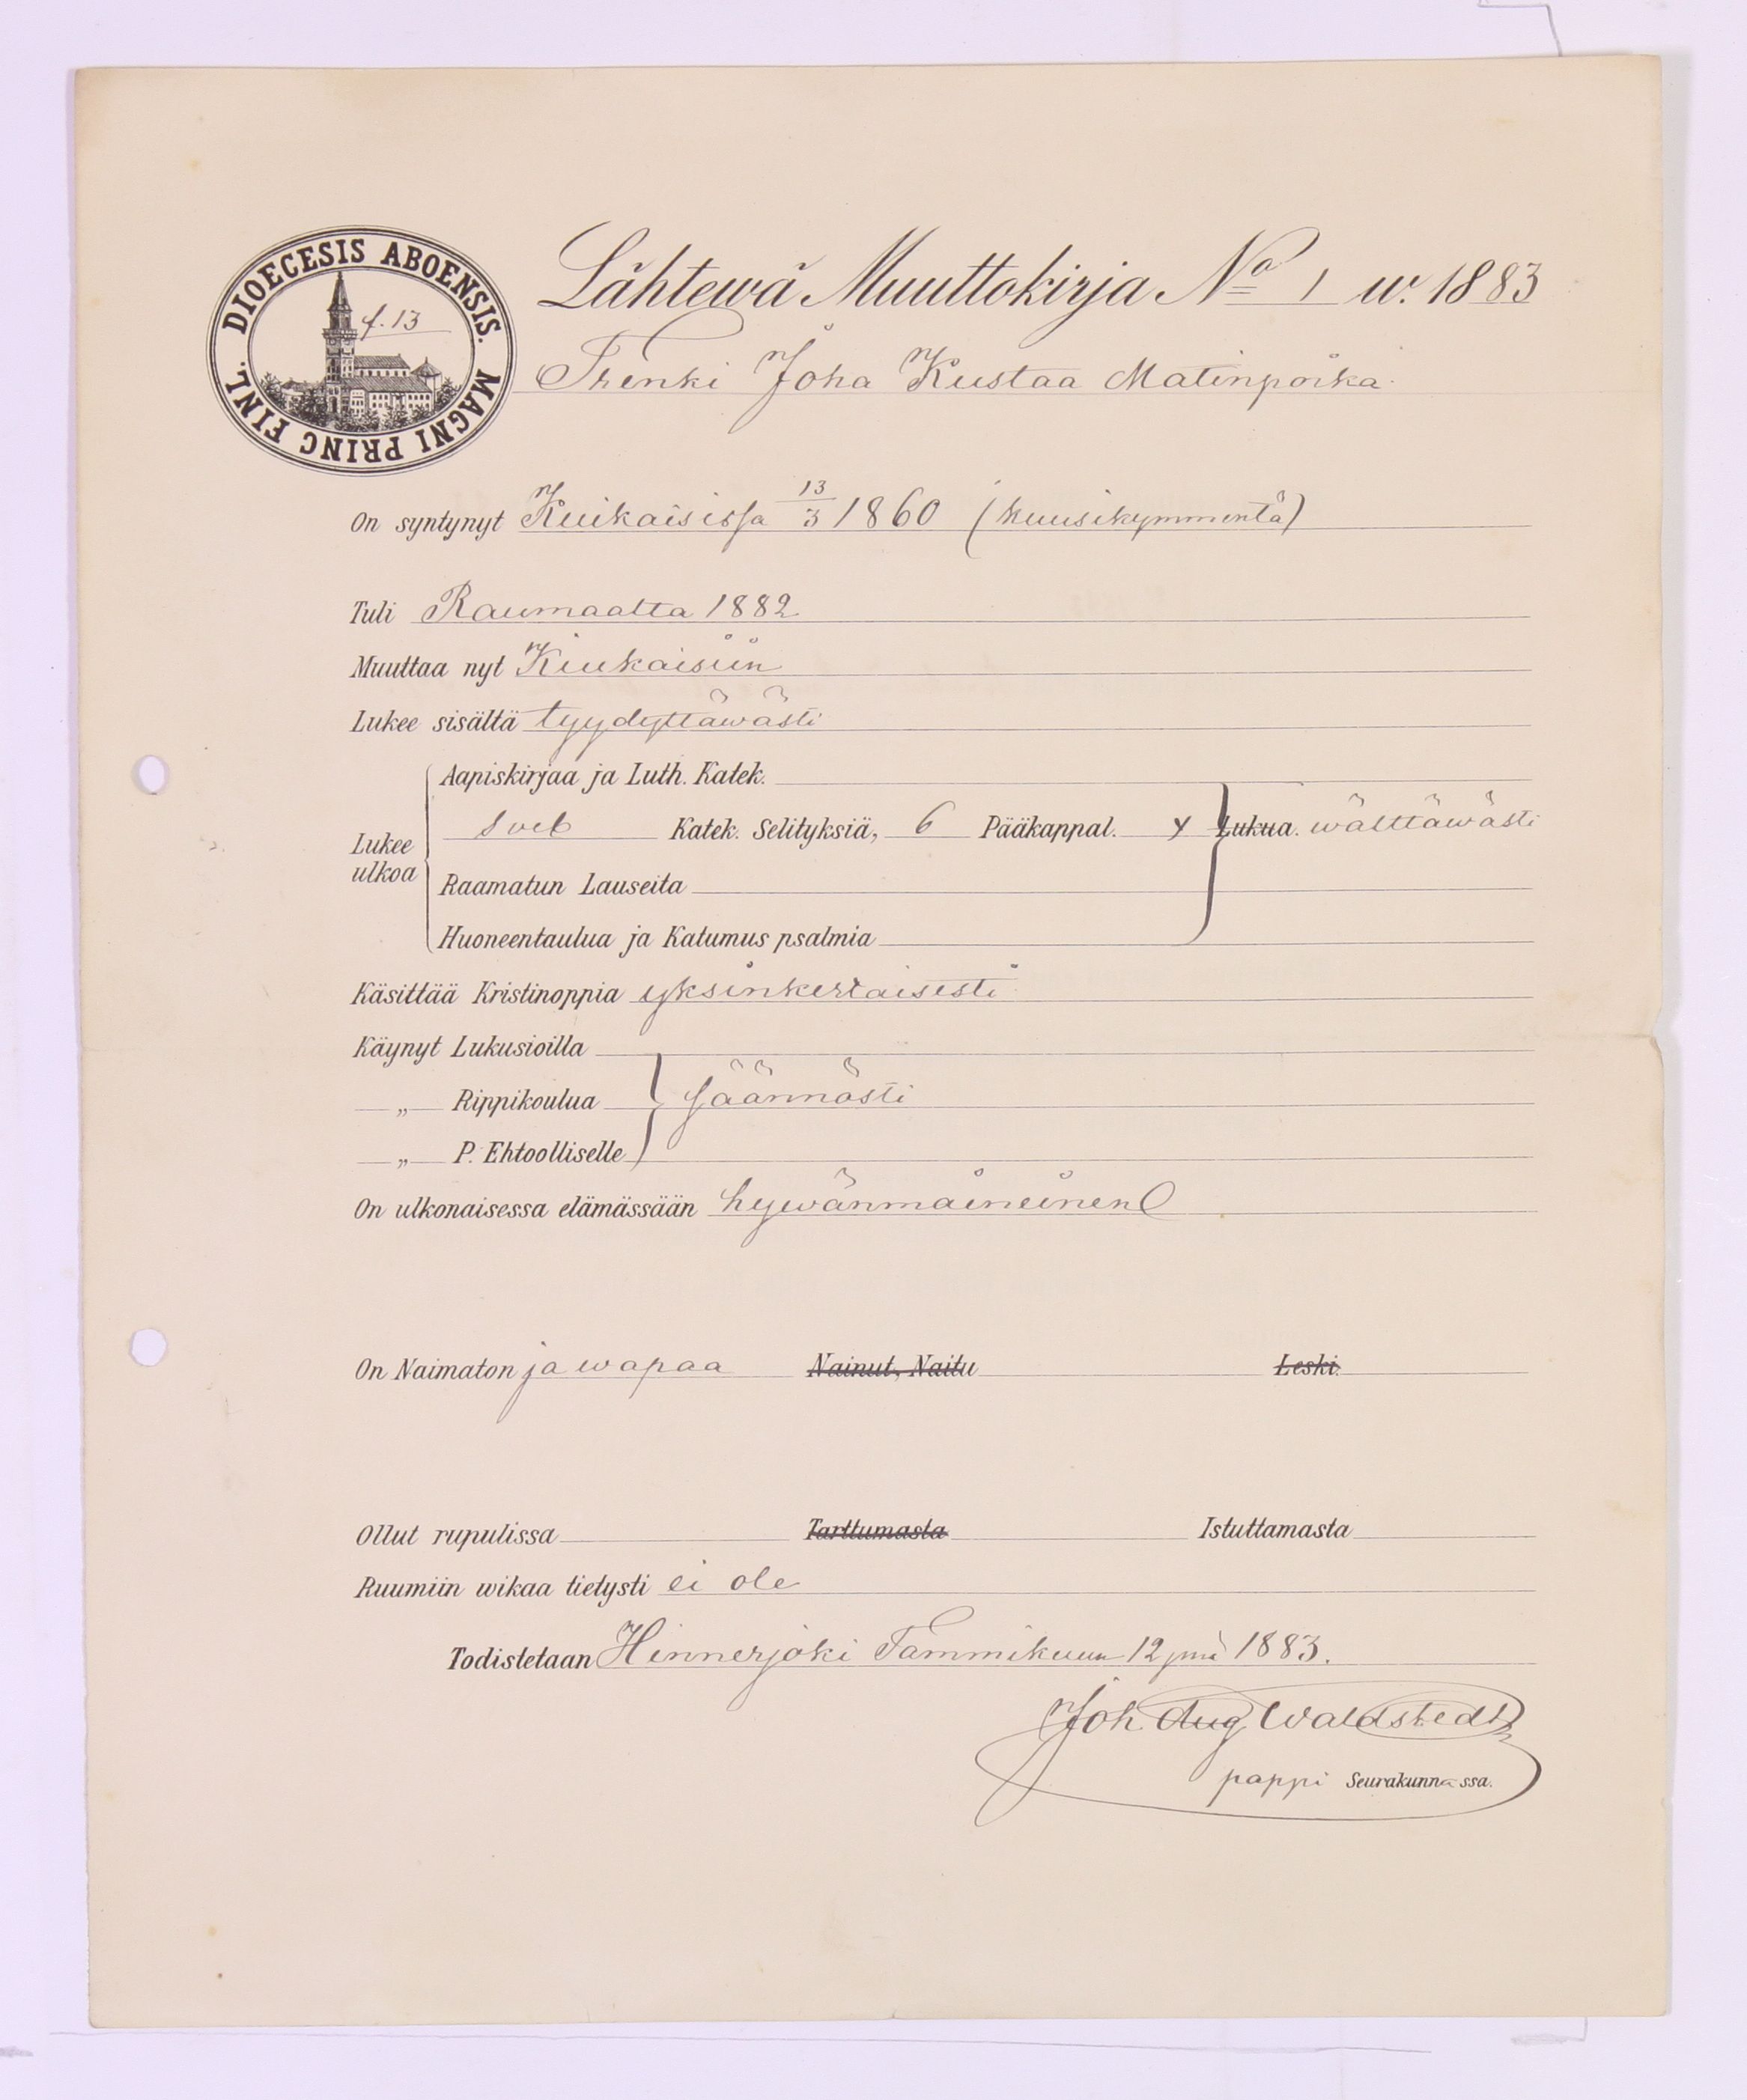 DIOECESIS ABOENSIS. MAGNI PRINC FINL.
f. 13
Lähtewä Muuttokirja No 1 w. 1883
Trenki Joha Kustaa Matinpoika
On syntynyt Kiukaisissa 13/3 1860 (kuusikymmentä)
Tuli Raumaalta 1882
Muuttaa nyt Kiukaisiin
Lukee sisältä tyydyttäwästi
Aapiskirjaa ja Luth. Katek.
Lukee ulkoa Sveb Katek. Selityksiä, 6 Pääkappal. Lukua. wälttäwästi
Raamatun Lauseita
Huoneentaulua ja Katumus psalmia
Käsittää Kristinoppia yksinkertaisesti
Käynyt Lukusioilla
„ Rippikoulua säännösti
„ P. Ehtoolliselle
On ulkonaisessa elämässään hywänmaineinen
On Naimaton ja wapaa Nainut, Naitu Leski.
Ollut rupulissa Tarttumasta Istuttamasta
Ruumiin wikaa tietysti ei ole
Todistetaan Hinnerjoki Tammikuun 12 pnä 1883.
Joh. Aug Waldstedt
pappi Seurakunnassa.